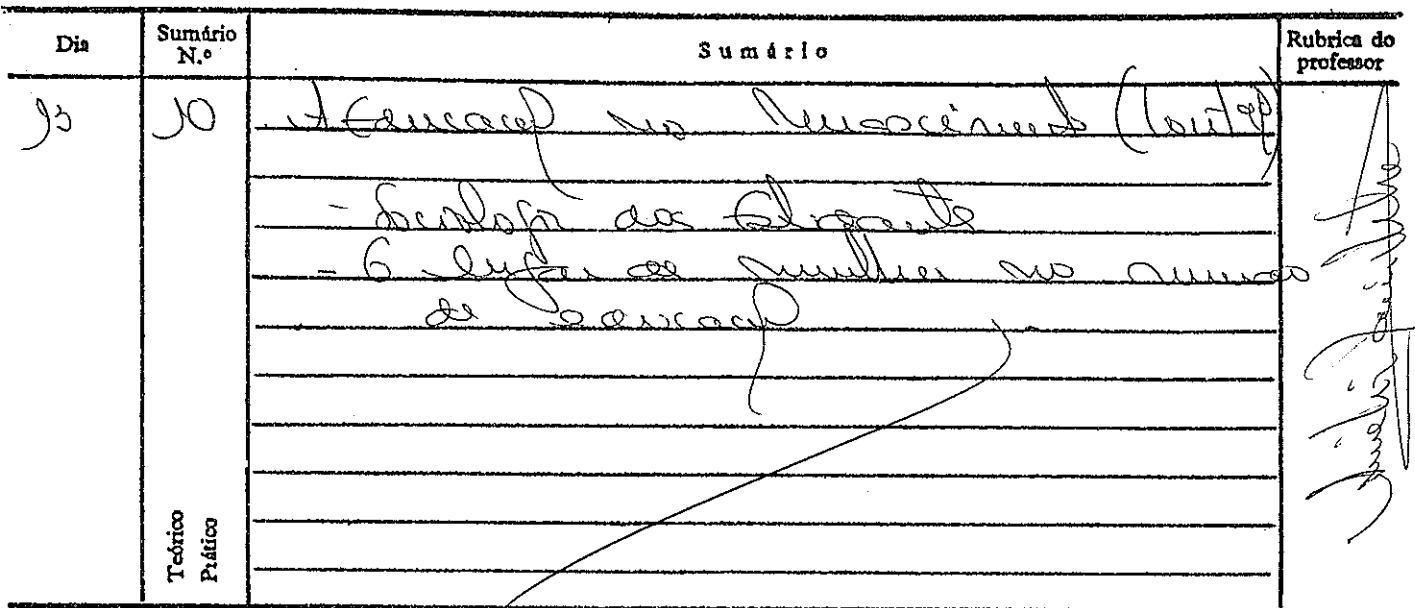 Dia
Sumário N.º
Sumário
Rubrica do professor
10
A Educação no Renascimento (Contç)
- Sociologia dos
- O lugar da mulher no mundo
da Educação
Teórico
Prático